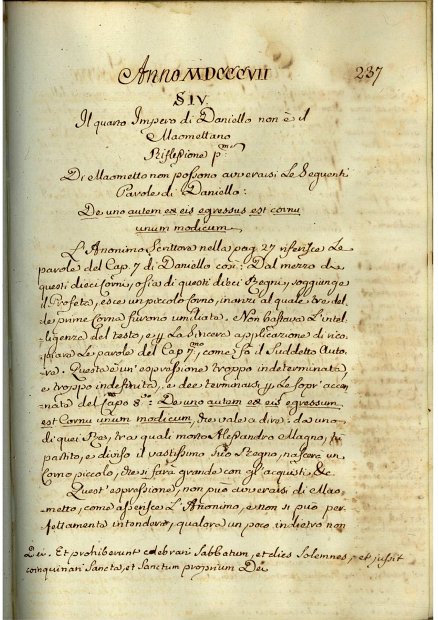 Anno MDCCCVII 237
S IV.
Il quarto Impero di Daniello non è il
Maomettano
Riflessione p.
Di Maometto non possono avverarsi Le Seguenti
Parole di Daniello:
De uno autem ex eis egressus est cornu
unum modicum
L'Anonimo Scrittore nella pag. 27 riferisce Le
parole del Cap 7 di Daniello così: Dal mezzo di
questi dieci corni, osia di questi dieci Regni, soggiunge
il Profeta, esce un piccolo corno, inanzi al quale tre del-
le prime Corna furono umiliate. Non bastava L'intel-
ligenza del testo, e La Sincera applicazione di rico-
piare Le parole del Cap 7, come fa il Suddetto Auto-
re. Questa è un'espressione troppo indeterminata,
e troppo indefinita, e dee terminarsi Le sopr'accen-
nata del Capo 8: De uno autem ex eis egressum
est Cornu unum modicum, che vale a dire: da uno
di quei Re, tra quali morto Alessandro Magno,
partito, e diviso il vastissimo Suo Regno, nascerà un
Corno piccolo, che si farà grande con gl'acquisti &c.
Quest'espressione, non può avverarsi di Mao-
metto, come asserisce L'Anonimo, e non si può per-
fettamente intendere, qualora un poco indietro non
Dei. Et prohiberent celebrari Sabbatum, et dies Solemnes, et jussit
coinquinari Sancta, et Sanctum proprium Dei